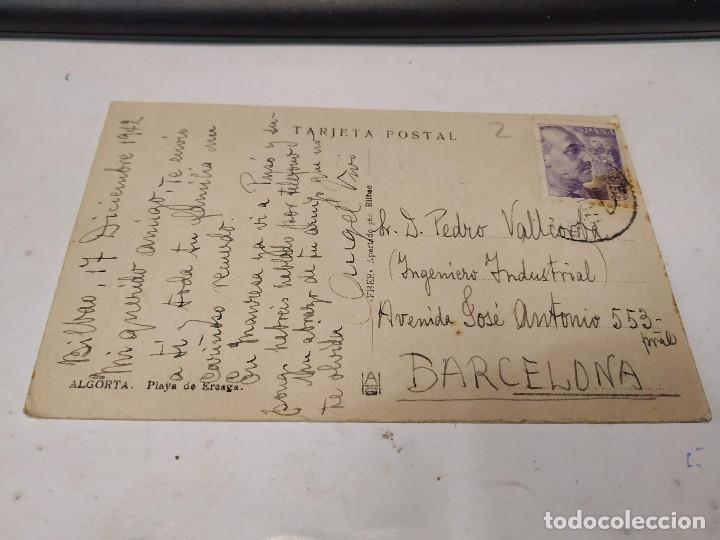 TARJETA POSTAL
2
ESPAÑA
Bilbao, 17 Diciembre 1942
Mi querido amigo: Te envío
a ti y toda tu familia un
cariñoso recuerdo.
En Manresa ya vi a y su-
pongo habreis hablado por teléfono
Un abrazo de tu amigo que no
te olvida
Angel
Apartado Bilbao
Sr. D. Pedro Vallcorba
(Ingeniero Industrial)
Avenida José Antonio 553-
pral
BARCELONA
ALGORTA. Playa de Ereaga.
todocoleccion.net